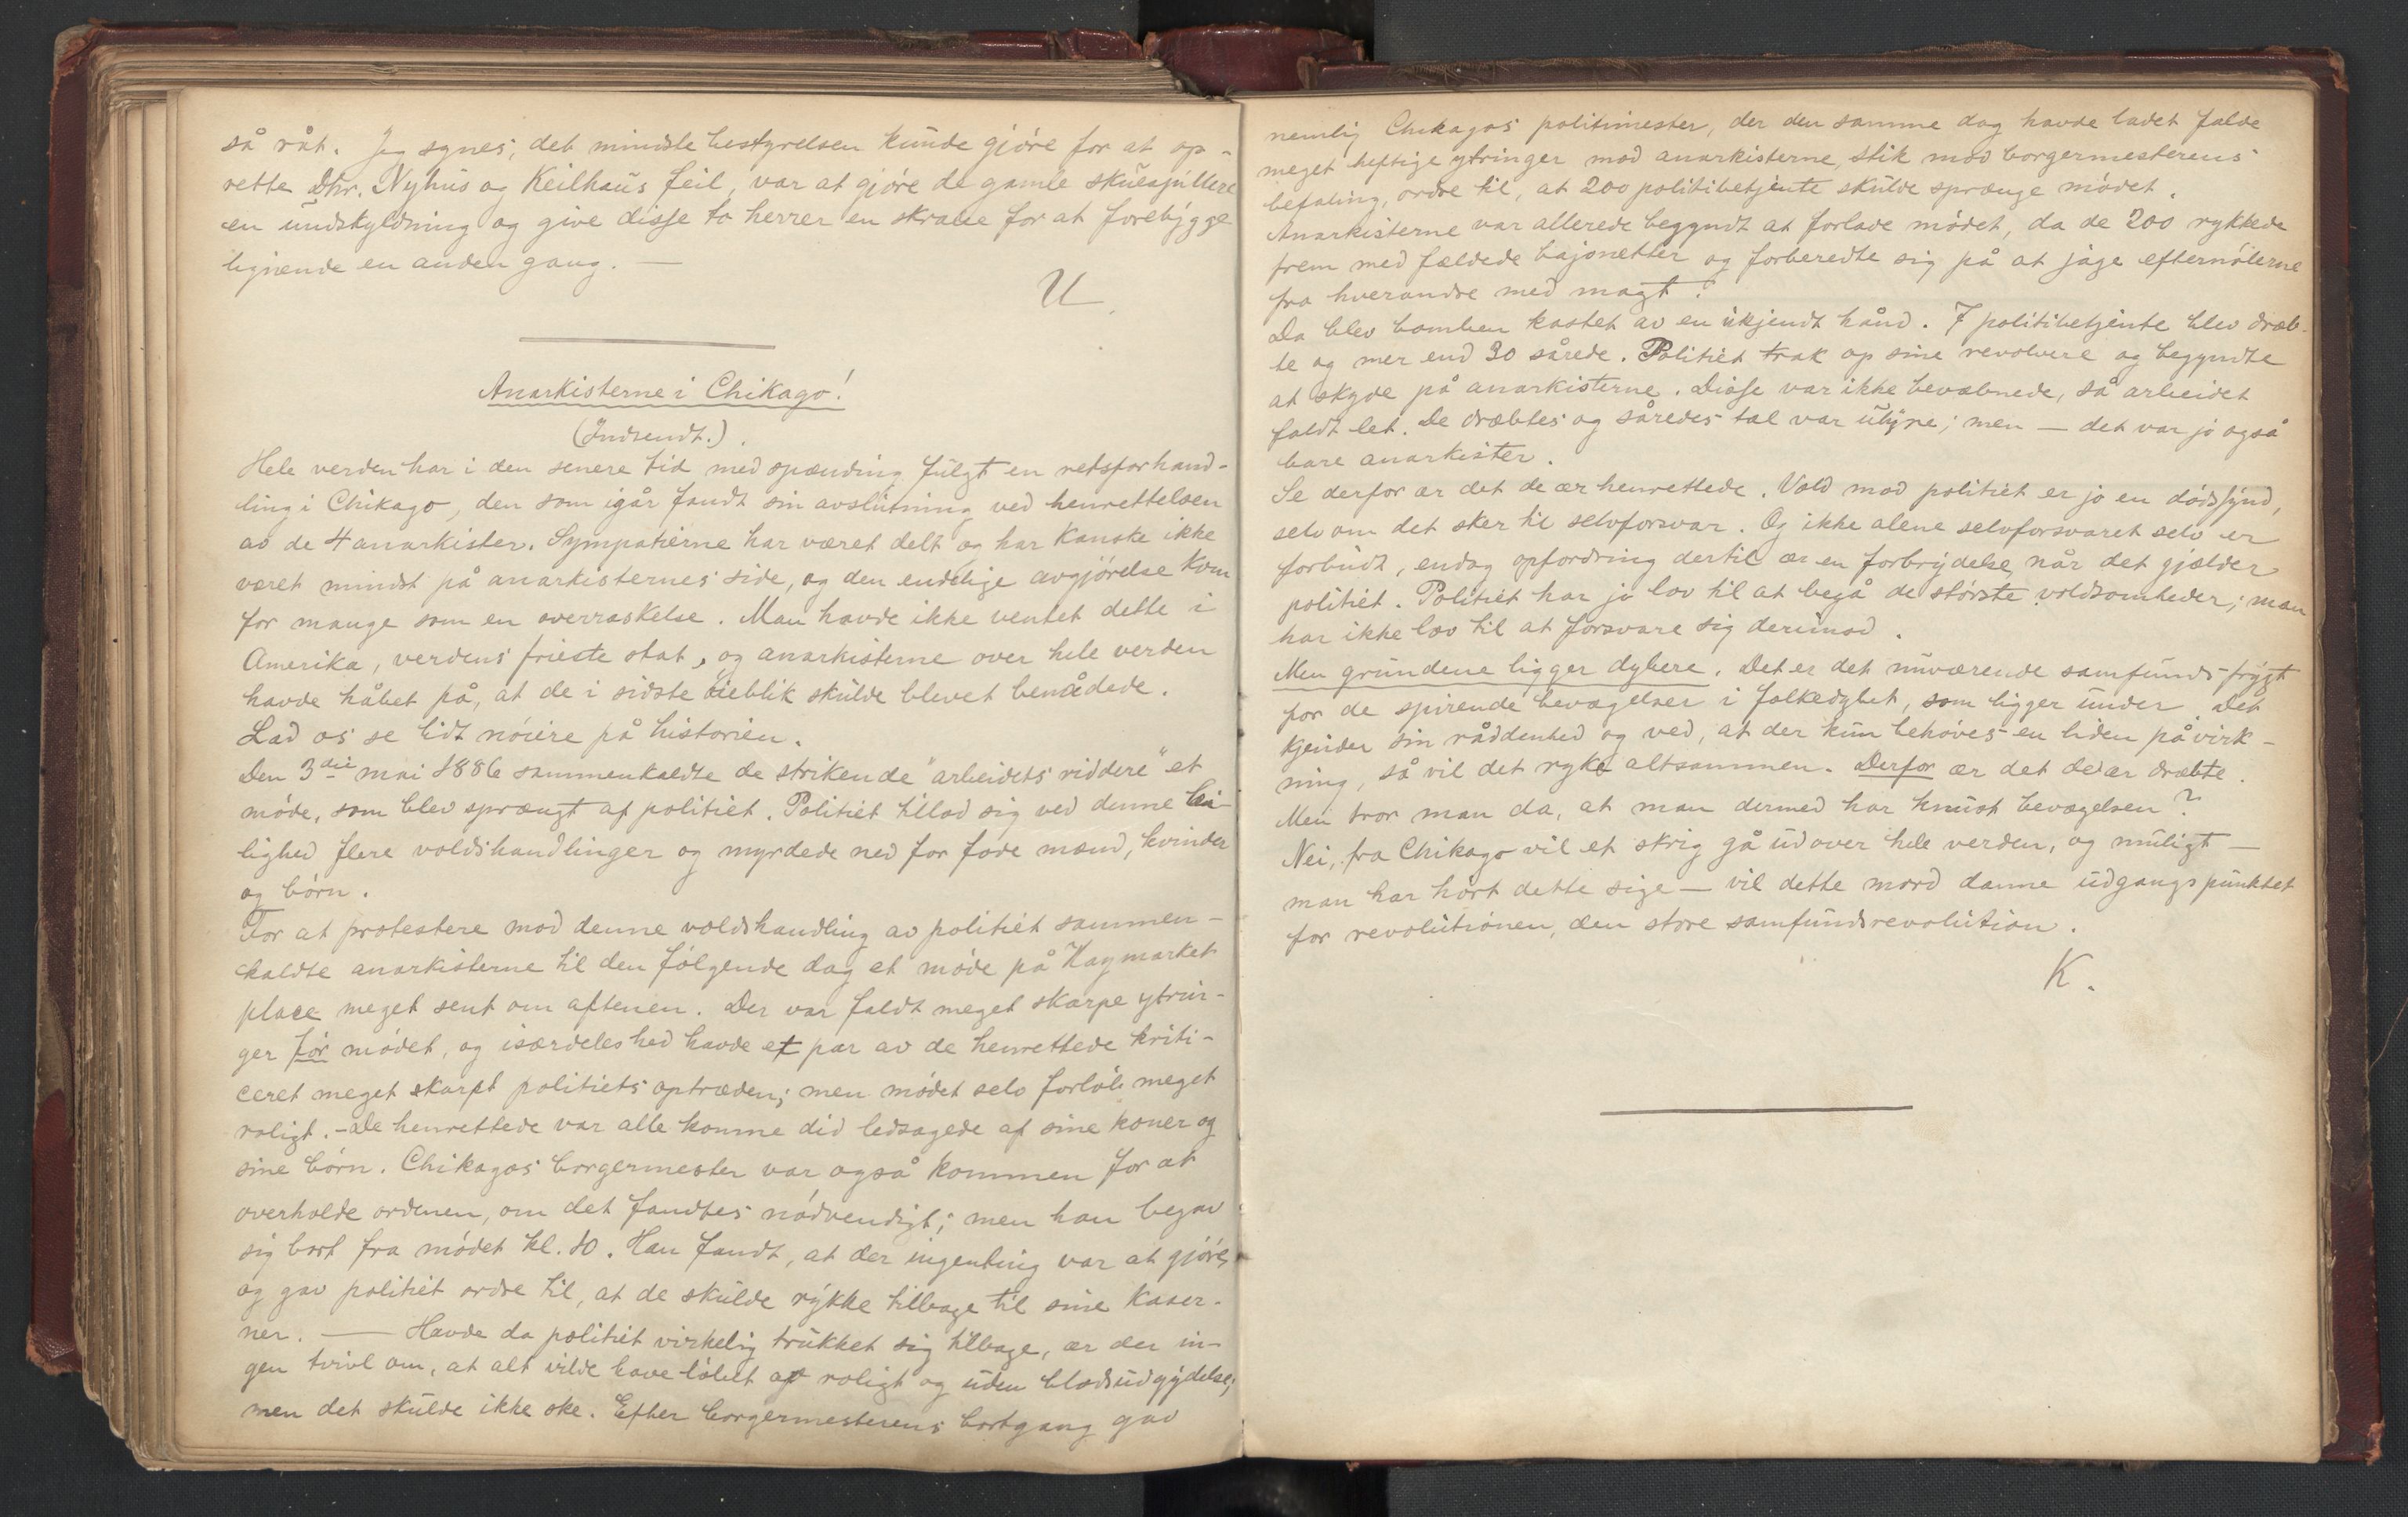 så råt. Jeg synes, det mindste bestyrelsen kunde gjöre for at op-
rette Dhr. Nyhus og Keilhaus feil, var at gjöre de gamle skuespillere
en undskyldning og give disse to herrer en skrape for at forebygge
lignende en anden gang. —
U.
Anarkisterne i Chikago!
(Indsendt.).
Hele verden har i den senere tid med spænding fulgt en retsforhand-
ling i Chikago, den som igår fandt sin avslutning ved henrettelsen
av de 4 anarkister. Sympatierne har været delt og har kanske ikke
været mindst på anarkisternes side, og den endelige avgjörelse kom
for mange som en overraskelse. Man havde ikke ventet dette i
Amerika, verdens frieste stat, og anarkisterne over hele verden
havde håbet på, at de i sidste öieblik skulde blevet benådede.
Lad os se lidt nöiere på historien.
Den 3die mai 1886 sammenkaldte de strikende "arbeidets riddere" et
möde, som blev sprængt af politiet. Politiet tillod sig ved denne lei-
lighed flere voldshandlinger og myrdede ned for fode mænd, kvinder
og börn.
For at protestere mod denne voldshandling av politiet sammen-
kaldte anarkisterne til den fölgende dag et möde på Haymarket
place meget sent om aftenen. Der var faldt meget skarpe ytrin-
ger för mödet, og isærdeleshed havde et par av de henrettede kriti-
ceret meget skarpt politiets optræden; men mödet selv forlöb meget
roligt. - De henrettede var alle komne did ledsagede af sine koner og
sine börn. Chikagos borgermester var også kommen for at
overholde ordenen, om det fandtes nödvendigt; men han begav
sig bort fra mödet kl. 10. Han fandt, at der ingenting var at gjöre,
og gav politiet ordre til, at de skulde rykke tilbage til sine kaser-
ner. — Havde da politiet virkelig trukket sig tilbage, ær der in-
gen tvivl om, at alt vilde have löbet af roligt og uden blodsudgydelse;
men det skulde ikke ske. Efter borgermesterens bortgang gav
nemlig Chikagos politimester, der den samme dag havde ladet falde
meget heftige ytringer mod anarkisterne, stik mod borgermesterens
befaling, ordre til, at 200 politibetjente skulde sprænge mödet.
Anarkisterne var allerede begyndt at forlade mödet, da de 200 rykkede
frem med fældede bajonetter og forberedte sig på at jage efternölerne
fra hverandre med magt.
Da blev bomben kastet av en ukjendt hånd. 7 politibetjente blev dræb-
te og mer end 30 sårede. Politiet trak op sine revolvere og begyndte
at skyde på anarkisterne. Disse var ikke bevæbnede, så arbeidet
faldt let. De dræbtes og såredes tal var uhyre; men — det var jo også
bare anarkister.
Se derfor ær det de ær henrettede. Vold mod politiet er jo en dödssynd,
selv om det sker til selvforsvar. Og ikke alene selvforsvaret selv er
forbudt, endog opfordring dertil ær en forbrydelse, når det gjælder
politiet. Politiet har jo lov til at begå de störste voldsomheder; man
har ikke lov til at forsvare sig derimod.
Men grundene ligger dybere. Det er det nuværende samfunds frygt
for de spirende bevægelser i folkedybet, som ligger under. Det
kjender sin råddenhed og ved, at der kun behöves en liden påvirk-
ning, så vil det ryke altsammen. Derfor ær det de ær dræbte.
Men tror man da, at man dermed har knust bevægelsen?
Nei, fra Chikago vil et skrig gå ud over hele verden, og muligt —
man har hört dette sige — vil dette mord danne udgangspunktet
for revolutionen, den store samfundsrevolution.
K.